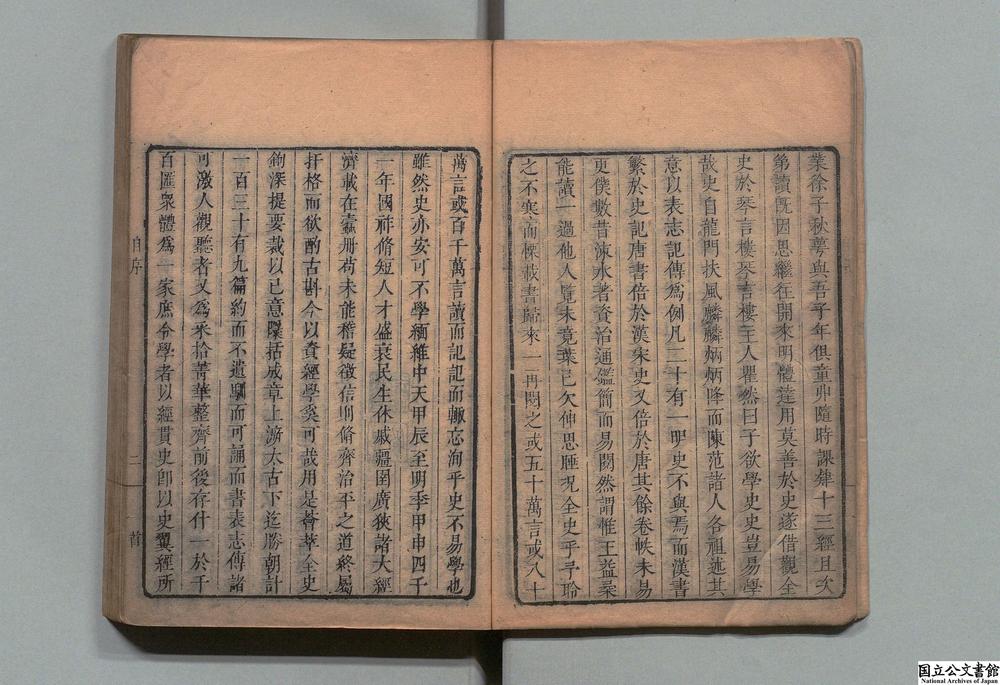 業徐子秋夢與吾子年俱童丱隨時課肄十三經且次
第讀旣因思繼往開來明體達用莫善於史遂借觀全
史於琴言樓琴言樓主人瞿然曰子欲學史史豈易學
故史自龍門扶風麟麟炳炳降而陳范諸人各祖述其
意以表志記傳爲例凡二十有一明史不與焉而漢書
繁於史記唐書倍於漢宋史又倍於唐其餘卷帙未易
更僕數昔涑水著資治通鑑簡而易閱然謂惟王益柔
能讀一過他人覽未竟葉已欠伸思睡况全史乎予聆
之不寒而慄載書歸來一再閱之或五十萬言或八十
萬言或百千萬言讀而記記而輒忘洵乎史不易學也
雖然史亦安可不學緬維中天甲辰至明季甲申四千
一年國祚脩短人才盛衰民生休戚疆圉廣狹諸大經
濟載在史册苟未能稽疑徵信則脩齊治平之道終屬
扞格而欲酌古斟今以資經學奚可哉用是薈萃全史
鉤深提要裁以己意隱括成章上溯太古下迄勝朝計
一百三十有九篇約而不遺馴而可誦而書表志傳諸
可激人觀聽者又爲采拾菁華整齊前後存什一於千
百匯衆體爲一家庶令學者以經貫史卽以史翼經所
自序
二
首
国立公文書館
National Archives of Japan